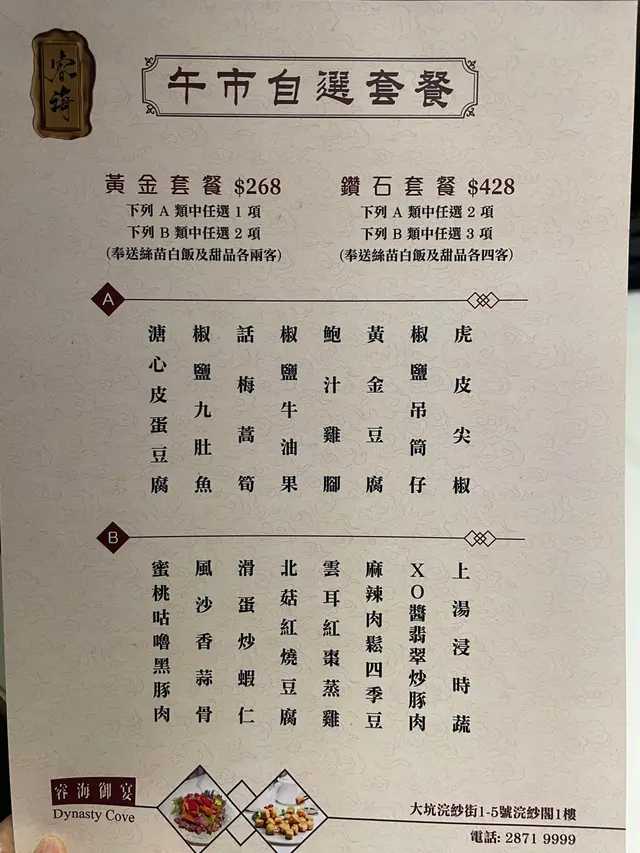 睿海
午市自選套餐
黃金套餐 $268
下列 A 類中任選 1 項
下列 B 類中任選 2 項
(奉送絲苗白飯及甜品各兩客)
鑽石套餐 $428
下列 A 類中任選 2 項
下列 B 類中任選 3 項
(奉送絲苗白飯及甜品各四客)
A
虎皮尖椒
椒鹽吊筒仔
黃金豆腐
鮑汁雞腳
椒鹽牛油果
話梅萵筍
椒鹽九肚魚
溏心皮蛋豆腐
B
上湯浸時蔬
XO醬翡翠炒豚肉
麻辣肉鬆四季豆
雲耳紅棗蒸雞
北菇紅燒豆腐
滑蛋炒蝦仁
風沙香蒜骨
蜜桃咕嚕黑豚肉
睿海御宴
Dynasty Cove
大坑浣紗街1-5號浣紗閣1樓
電話: 2871 9999